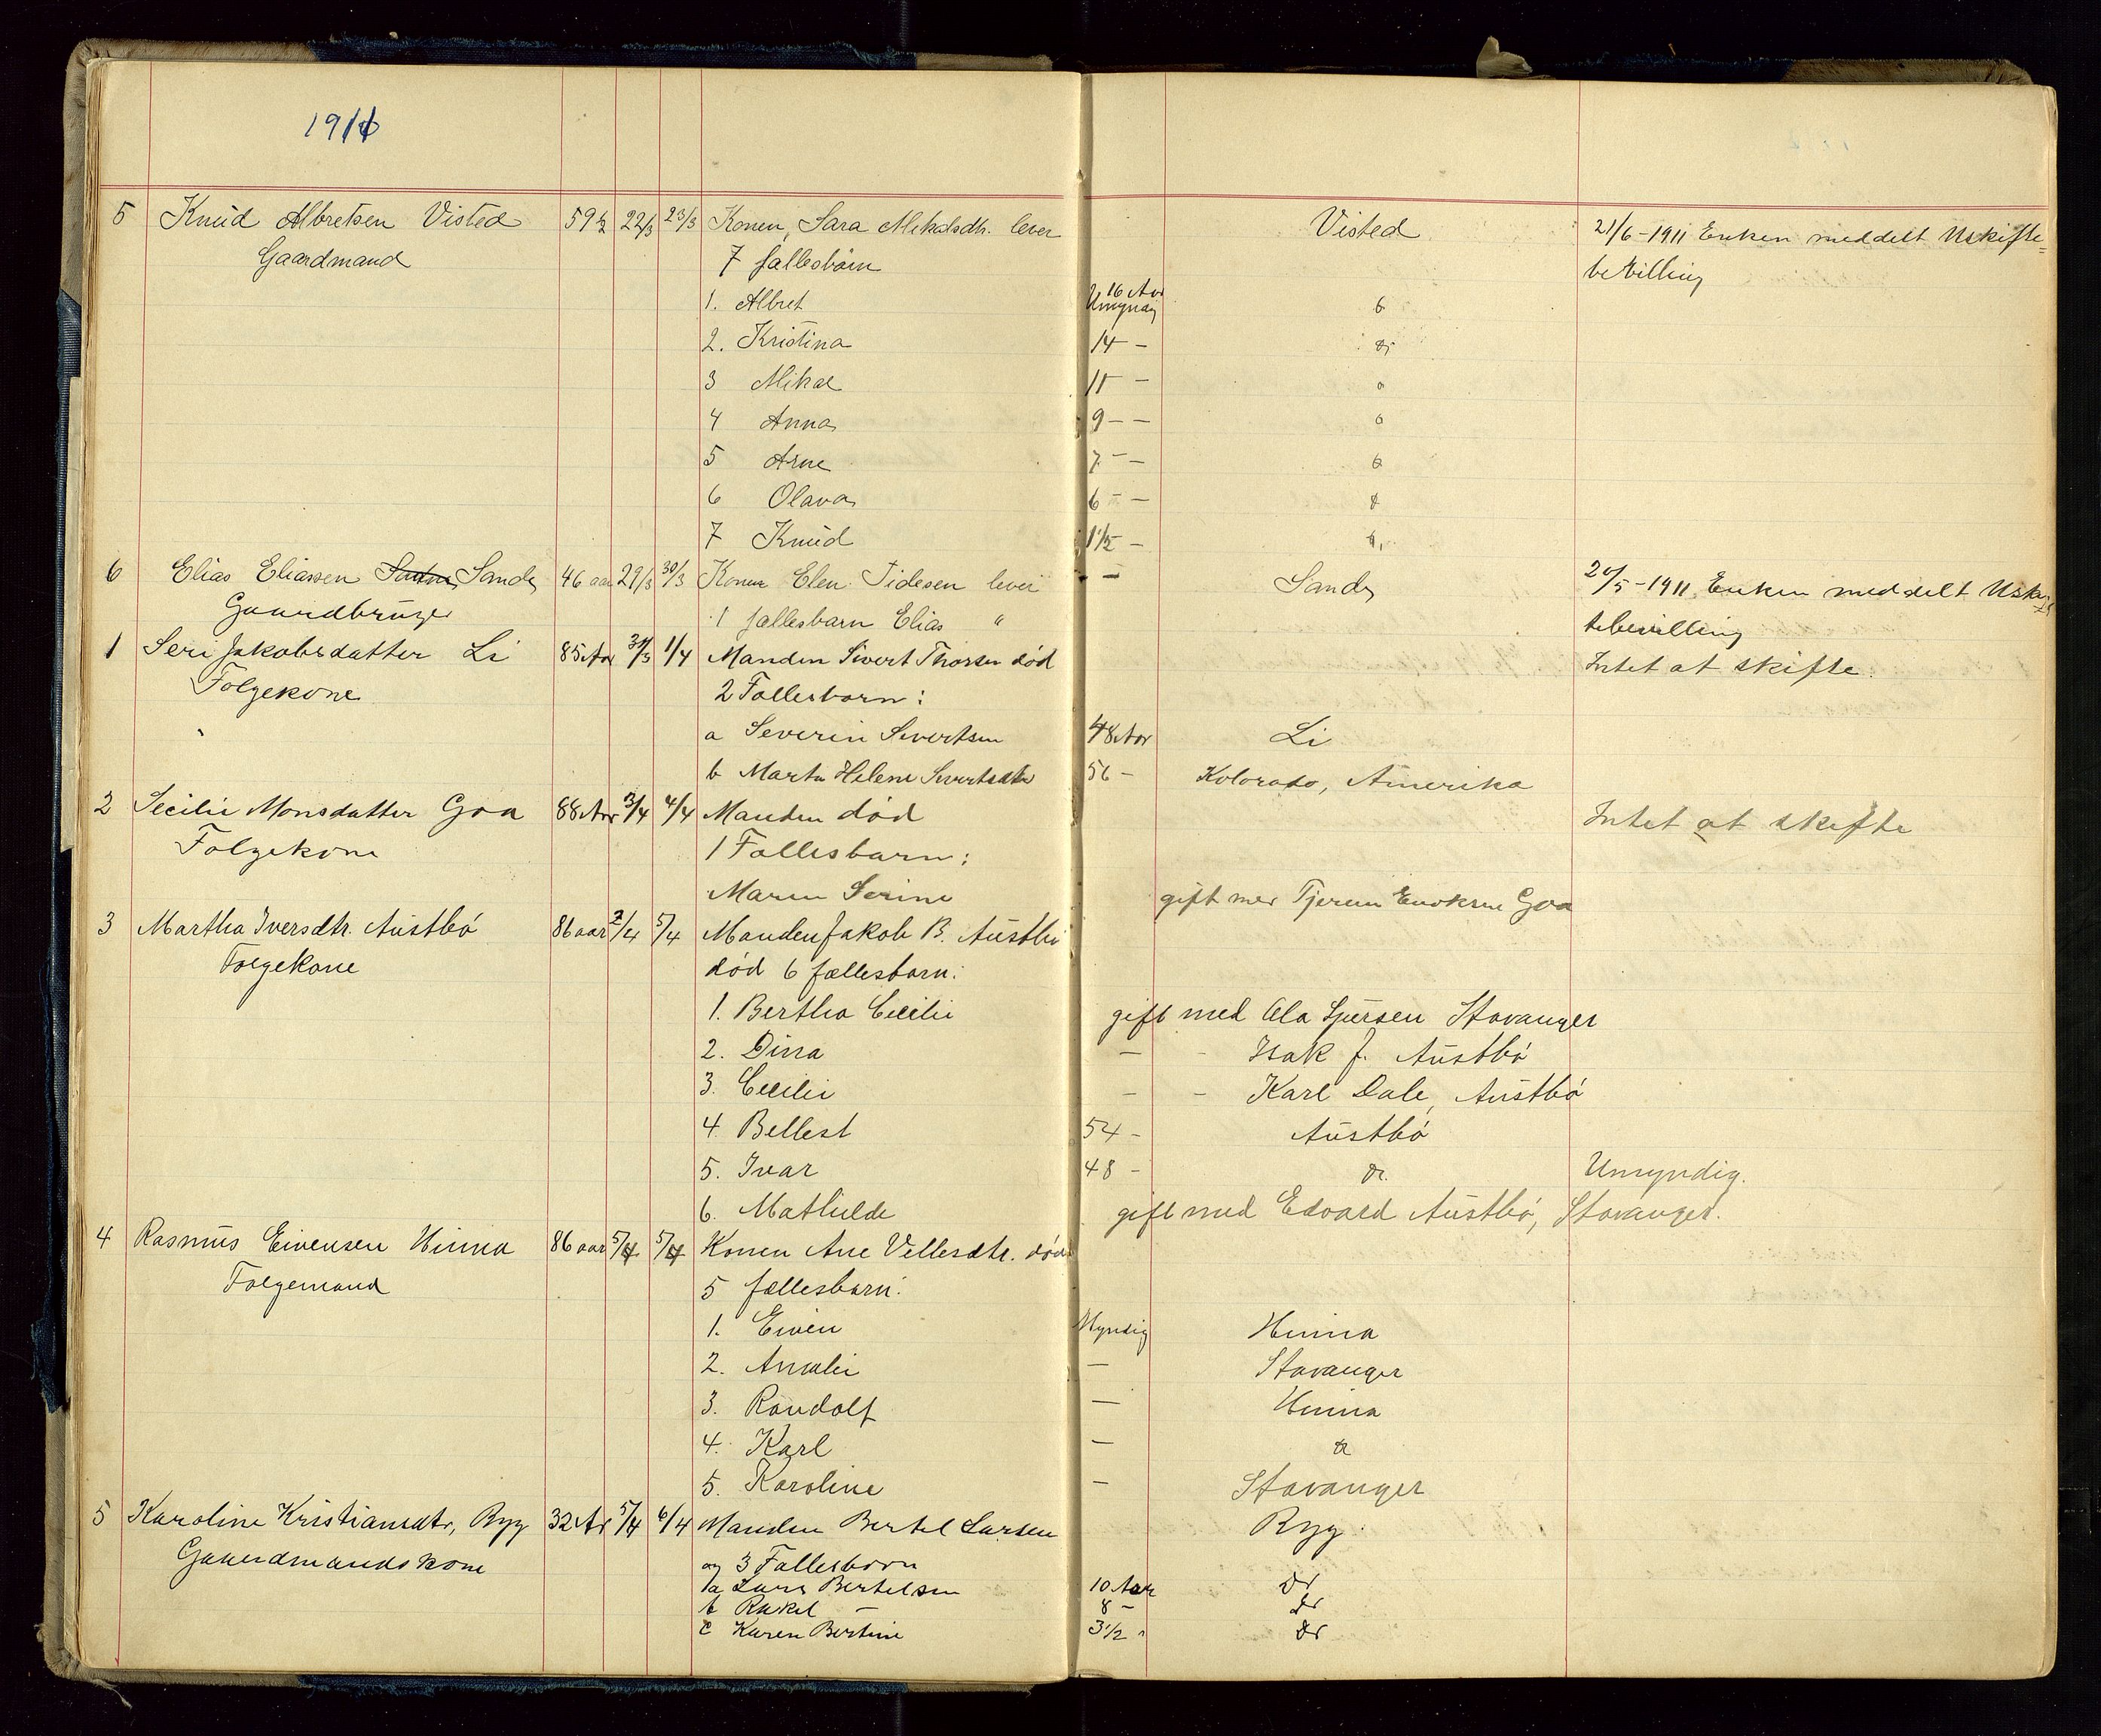 1911
5 Knud Albretsen Visted 59½ 22/3 23/3 Konen, Sara Mikalsdtr. lever Visted 21/6-1911 Enken meddelt Uskifte-
Gaardmand 7 fællesbørn bevilling
1. Albret 16 Aar Umyndig do
2. Kristina 14 - do
3 Mikal 11 - do
4 Anna 9 - - do
5 Arne 7 - - do
6 Olava 6 - - do
7 Knud 1½ - do
6 Elias Eliassen Sande 46 aar 29/3 30/3 Konen Elen Tidesen lever - Sande 20/5-1911 Enken meddelt Uskif
Gaardbruger 1 fællesbarn Elias " tebevilling
1 Seri Jakobsdatter Li 85 Aar 31/3 1/4 Manden Sivert Thorsen død Intet at skifte.
Folgekone 2 Fællesbørn:
a Severin Sivertsen 48 Aar Li
b Marta Helene Sivertsdtr 56 - Kolorado, Amerika
2 Secilie Monsdatter Goa 88 Aar 3/4 4/4 Manden død Intet at skifte
Folgekone 1 Fællesbarn:
Maren Serine gift med Tjeran Enoksen Goa
3 Martha Iversdtr. Austbø 86 aar 2/4 5/4 Manden Jakob B. Austbø
Folgekone død 6 fællesbarn:
1. Bertha Cecilie gift med Ola Sjursen Stavanger
2. Dina - - Isak J. Austbø
3. Cecilie - - Karl Dale, Austbø
4. Bellest 54 - Austbø
5. Ivar 48 - do. Umyndig.
6. Mathilde gift med Edvard Austbø, Stavanger.
4 Rasmus Eivensen Hinna 86 aar 5/4 5/4 Konen Ane Vellesdtr. død
Folgemand 5 fællesbarn:
1. Eiven Myndig Hinna
2. Amalie - Stavanger
3. Randolf - Hinna
4. Karl - do
5. Karoline - Stavanger
5 Karoline Kristiansdtr, Ryg 32 Ar 5/4 6/4 Manden Bertel Larsen Ryg
Gaardmandskone og 3 Fællesbørn
a Lars Bertelsen 10 Aar Do
b Rakel - 8 - Do
c Karen Bertine 3½ " Do